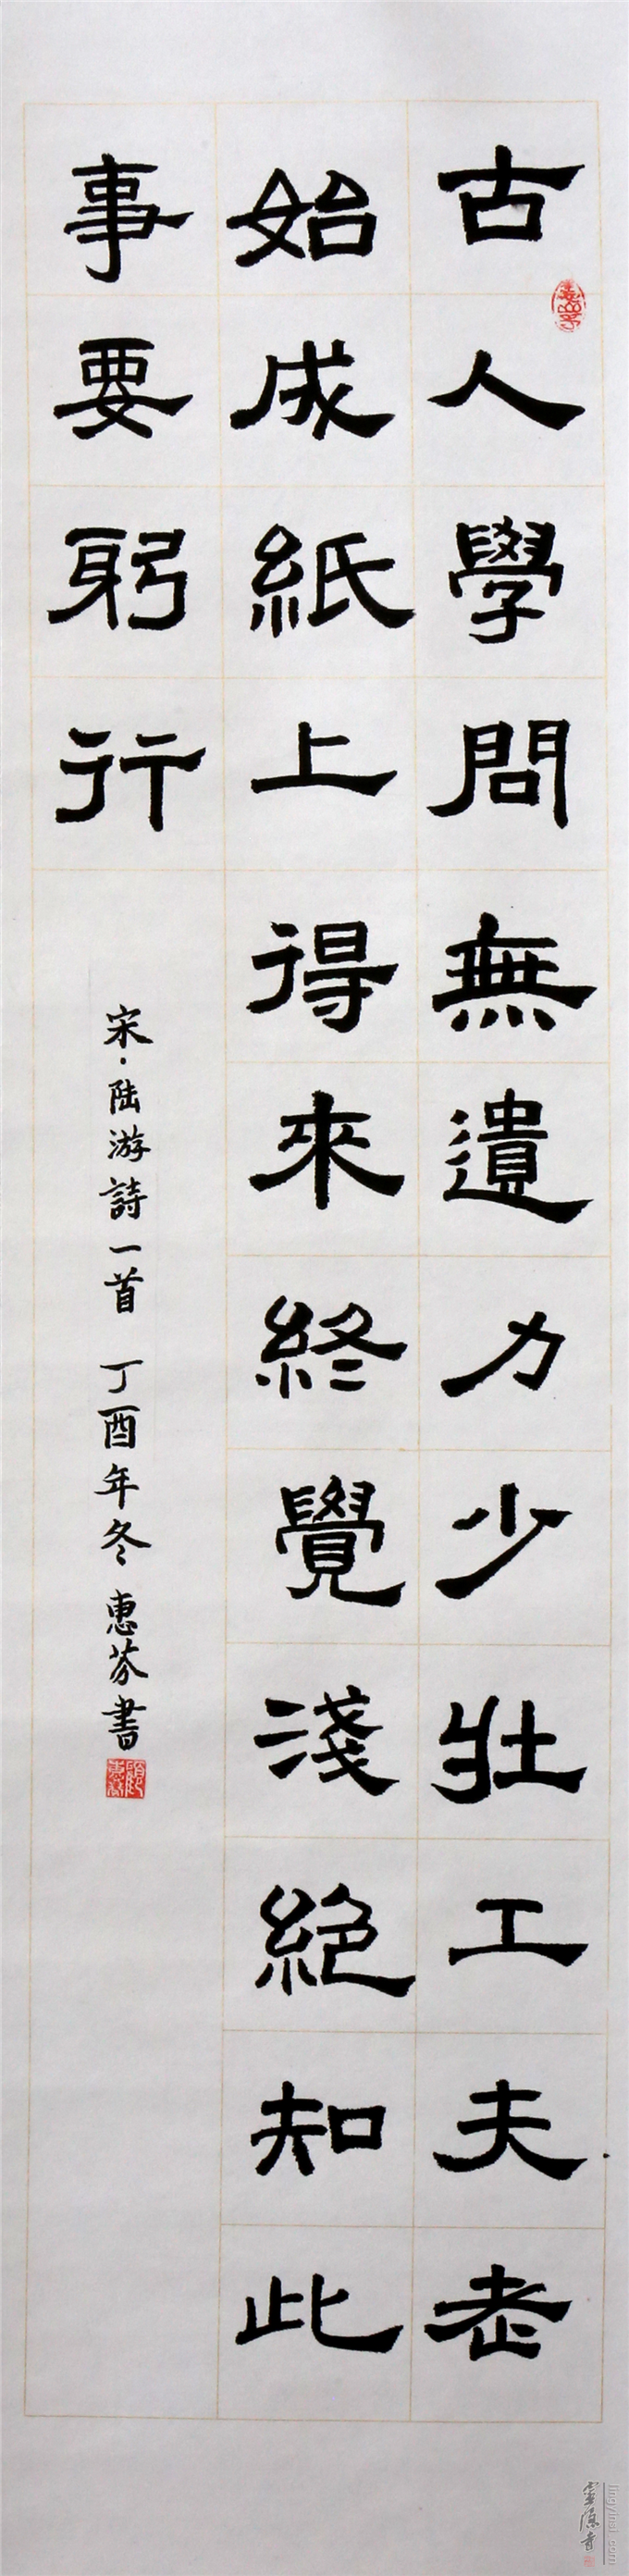 古人學問無遺力少壯工夫老
始成紙上得來終覺淺絕知此
事要躬行
宋·陆游詩一首 丁酉年冬 惠芬書